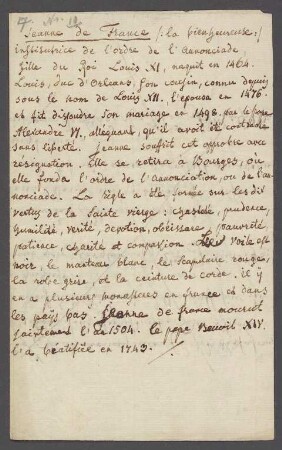 Jeanne de France /: la bienheureuse :/
institutrice de l'ordre de l'annonciade,
fille du Roi Louis XI, naquit en 1464.
Louis, duc d'Orleans, son cousin, connu depuis
sous le nom de Louis XII, l'épousa en 1476
et fit dissoudre son mariage en 1498 par le pape
Alexandre VI, alleguant, qu'il avoit été contracté
sans liberté. Jeanne souffrit cet opprobre avec
résignation. Elle se retira à Bourges, où
elle fonda l'ordre de l'annonciation ou de l'an-
nonciade. La règle a été formée sur les dix
vertus de la Sainte vierge: chasteté, prudence,
humilité, verité, devotion, obeissance, pauvreté,
patience, charité et compassion. Le voile est
noir, le manteau blanc, le scapulaire rouge,
la robe grise, et la ceinture de corde. il y
en a plusieurs monasteres en france et dans
les païs bas. Jeanne de france mourut
saintement l'an 1504. le pape Benoit XIV
l'a béatifiée en 1743.